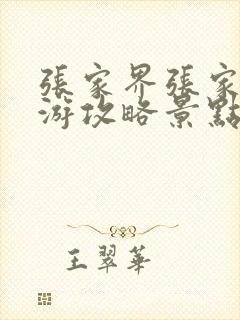 張家界張家
游攻略景點
王翠華